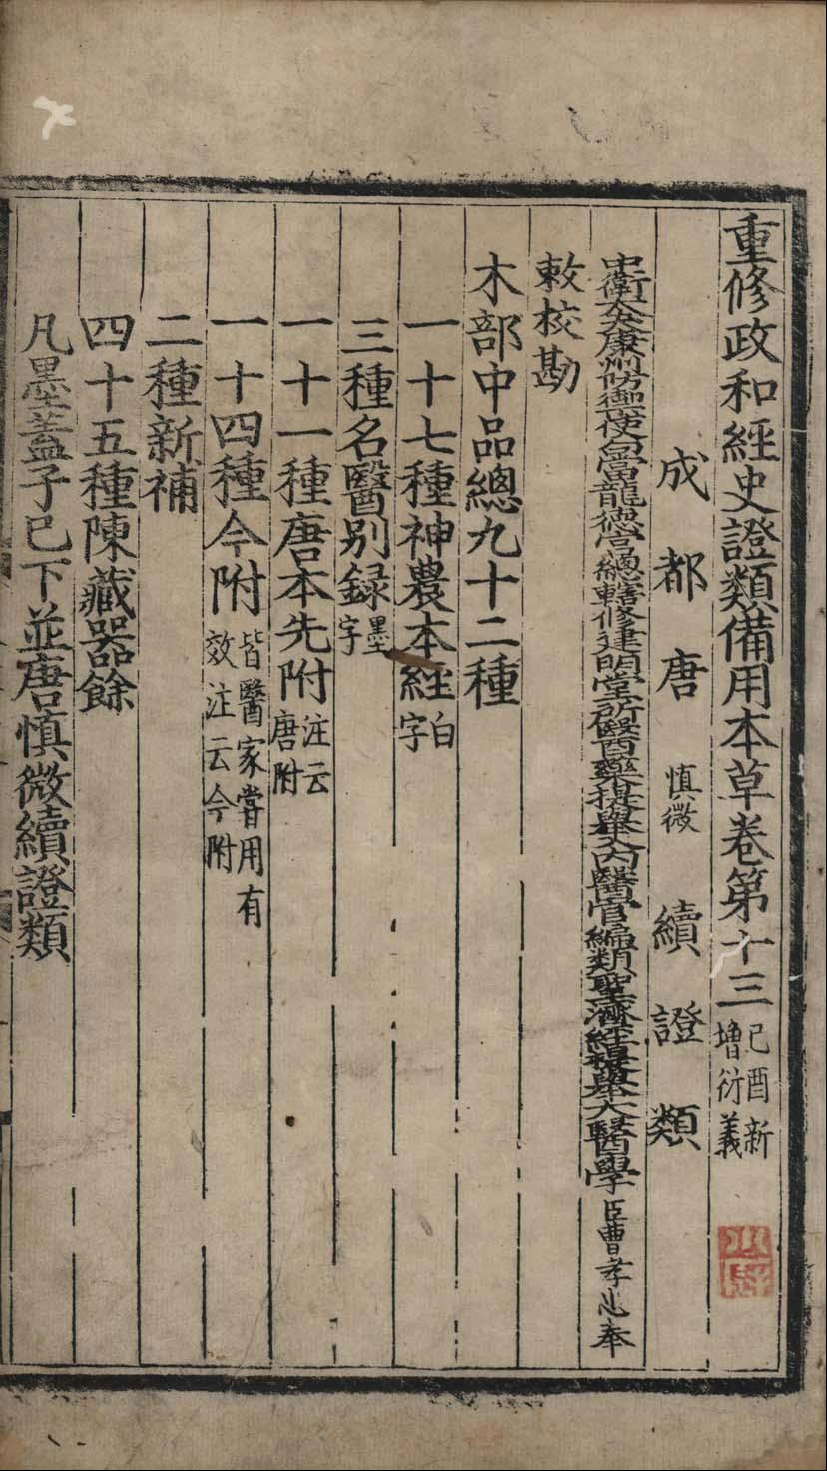 重修政和經史證類備用本草卷第十三 己酉新增衍義
成都唐慎微續證類
中衛大夫康州防禦使句當龍德宮總轄修建明堂所醫藥提舉入內醫官編類聖濟經提舉太醫學臣曹孝忠奉
敕校勘
木部中品總九十二種
一十七種神農本經白字
三種名醫別録墨字
一十一種唐本先附注云唐附
一十四種今附皆醫家嘗用有效注云今附
二種新補
四十五種陳藏器餘
凡墨蓋子已下並唐慎微續證類